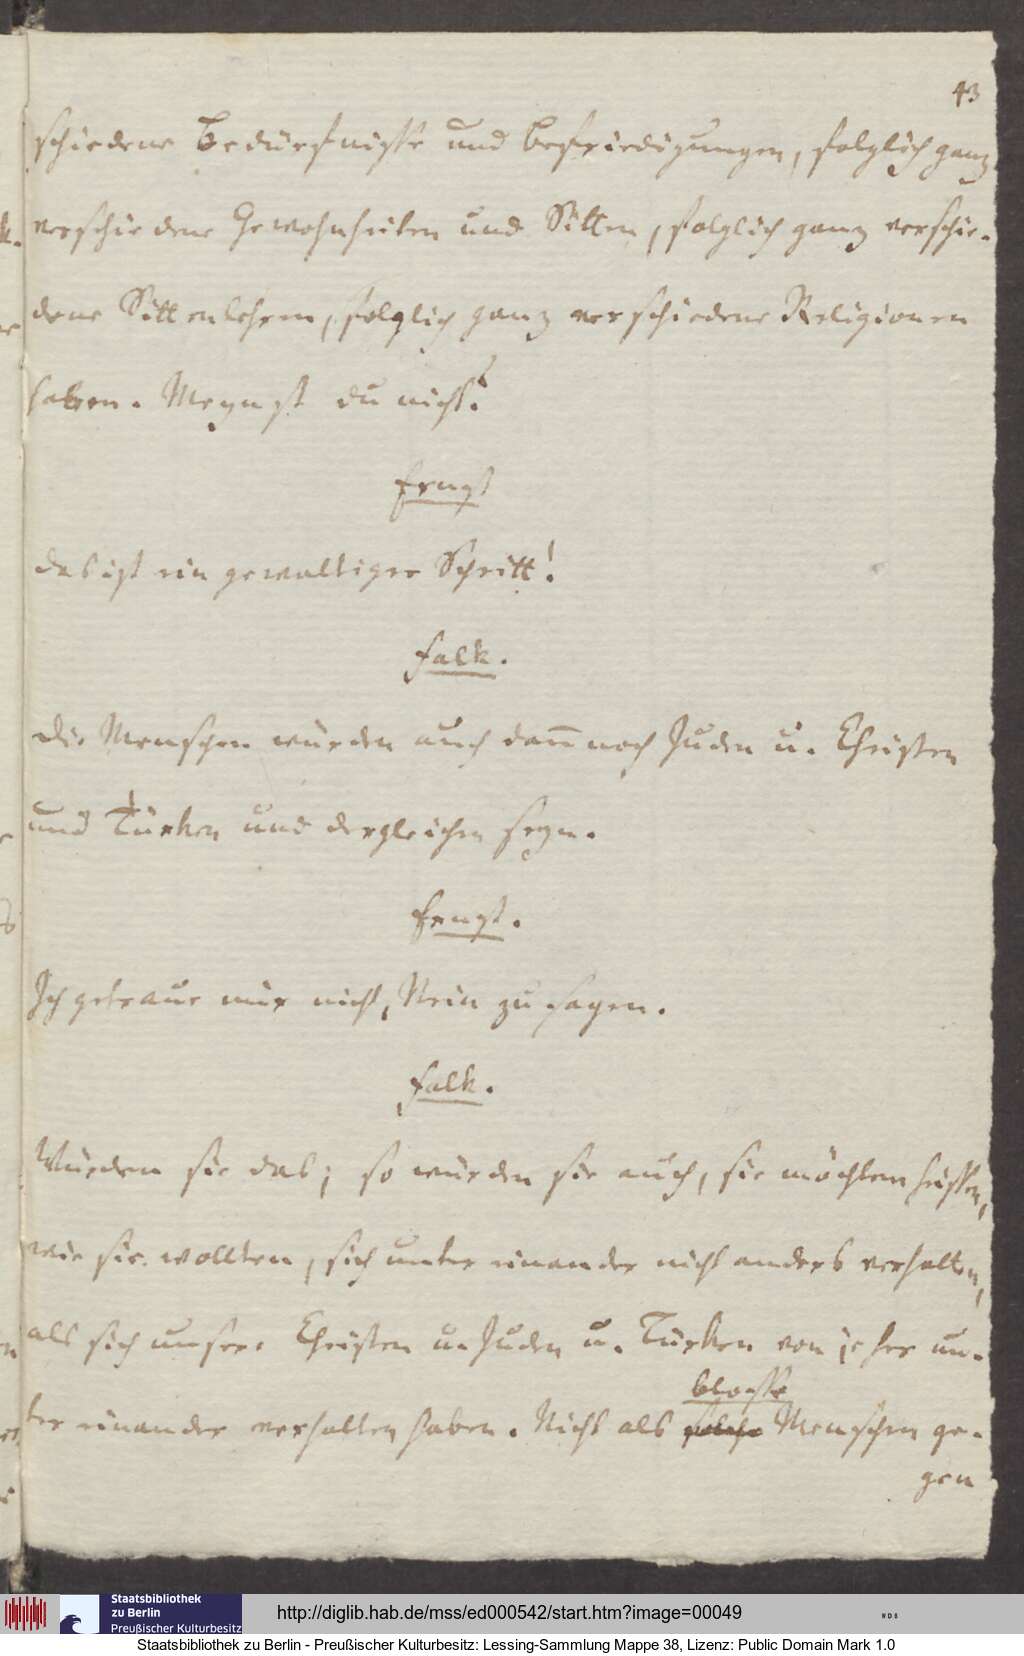 43
schiedene Bedürfnisse und Befriedigungen, folglich ganz
verschiedene Gewohnheiten und Sitten, folglich ganz verschie-
dene Sittenlehren, folglich ganz verschiedene Religionen
haben. Meynst du nicht?
Ernst
das ist ein gewaltiger Schritt!
Falk.
Die Menschen würden auch dann noch Juden u. Christen
und Türken und dergleichen seyn.
Ernst.
Ich getraue mir nicht, Nein zu sagen.
Falk.
Würden sie das; so würden sie auch, sie möchten heissen,
wie sie wollten, sich unter einander nicht anders verhalten,
als sich unsere Christen u. Juden u. Türken von je her un-
blosse
ter einander verhalten haben. Nicht als solche Menschen ge-
gen
Staatsbibliothek
zu Berlin
Preußischer Kulturbesitz
http://diglib.hab.de/mss/ed000542/start.htm?image=00049
Staatsbibliothek zu Berlin - Preußischer Kulturbesitz: Lessing-Sammlung Mappe 38, Lizenz: Public Domain Mark 1.0